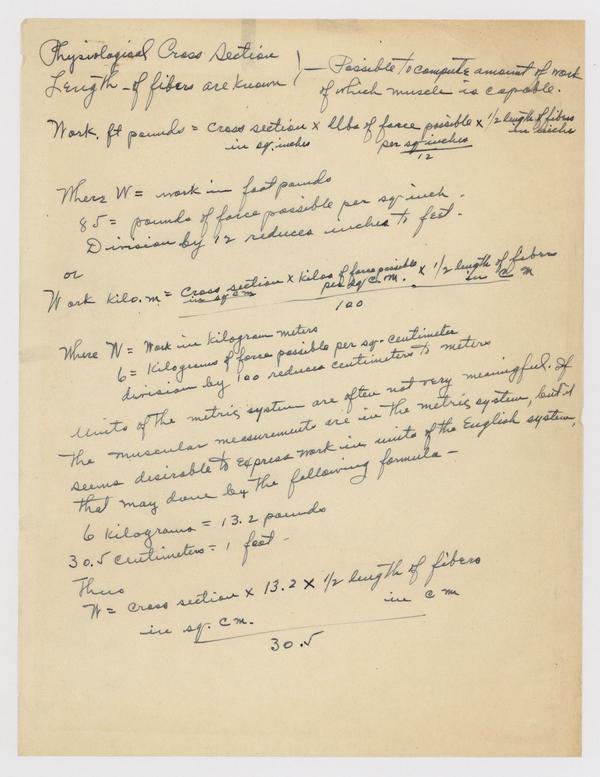 Physiological Cross Section
Length of fibers are known } — Possible to compute amount of work
of which muscle is capable.
Work, ft pounds = cross section x lbs of force possible x 1/2 length of fibers
in sq. inches per sq inches in inches
12
Where W = work in foot pounds
85 = pounds of force possible per sq inch.
Division by 12 reduces inches to feet.
or
Work kilo. m = cross section x kilos of force possible x 1/2 length of fibers
in sq cm per sq C.M. in C M
100
Where W = Work in kilogram meters
6 = kilograms of force possible per sq. centimeter
division by 100 reduces centimeters to meters
Units of the metric system are often not very meaningful. If
the muscular measurements are in the metric system, but it
seems desirable to express work in units of the English system,
that may done by the following formula —
6 kilograms = 13.2 pounds
30.5 centimeters = 1 foot -
Thus
W = cross section x 13.2 x 1/2 length of fibers
in sq. cm. in c m
30.5